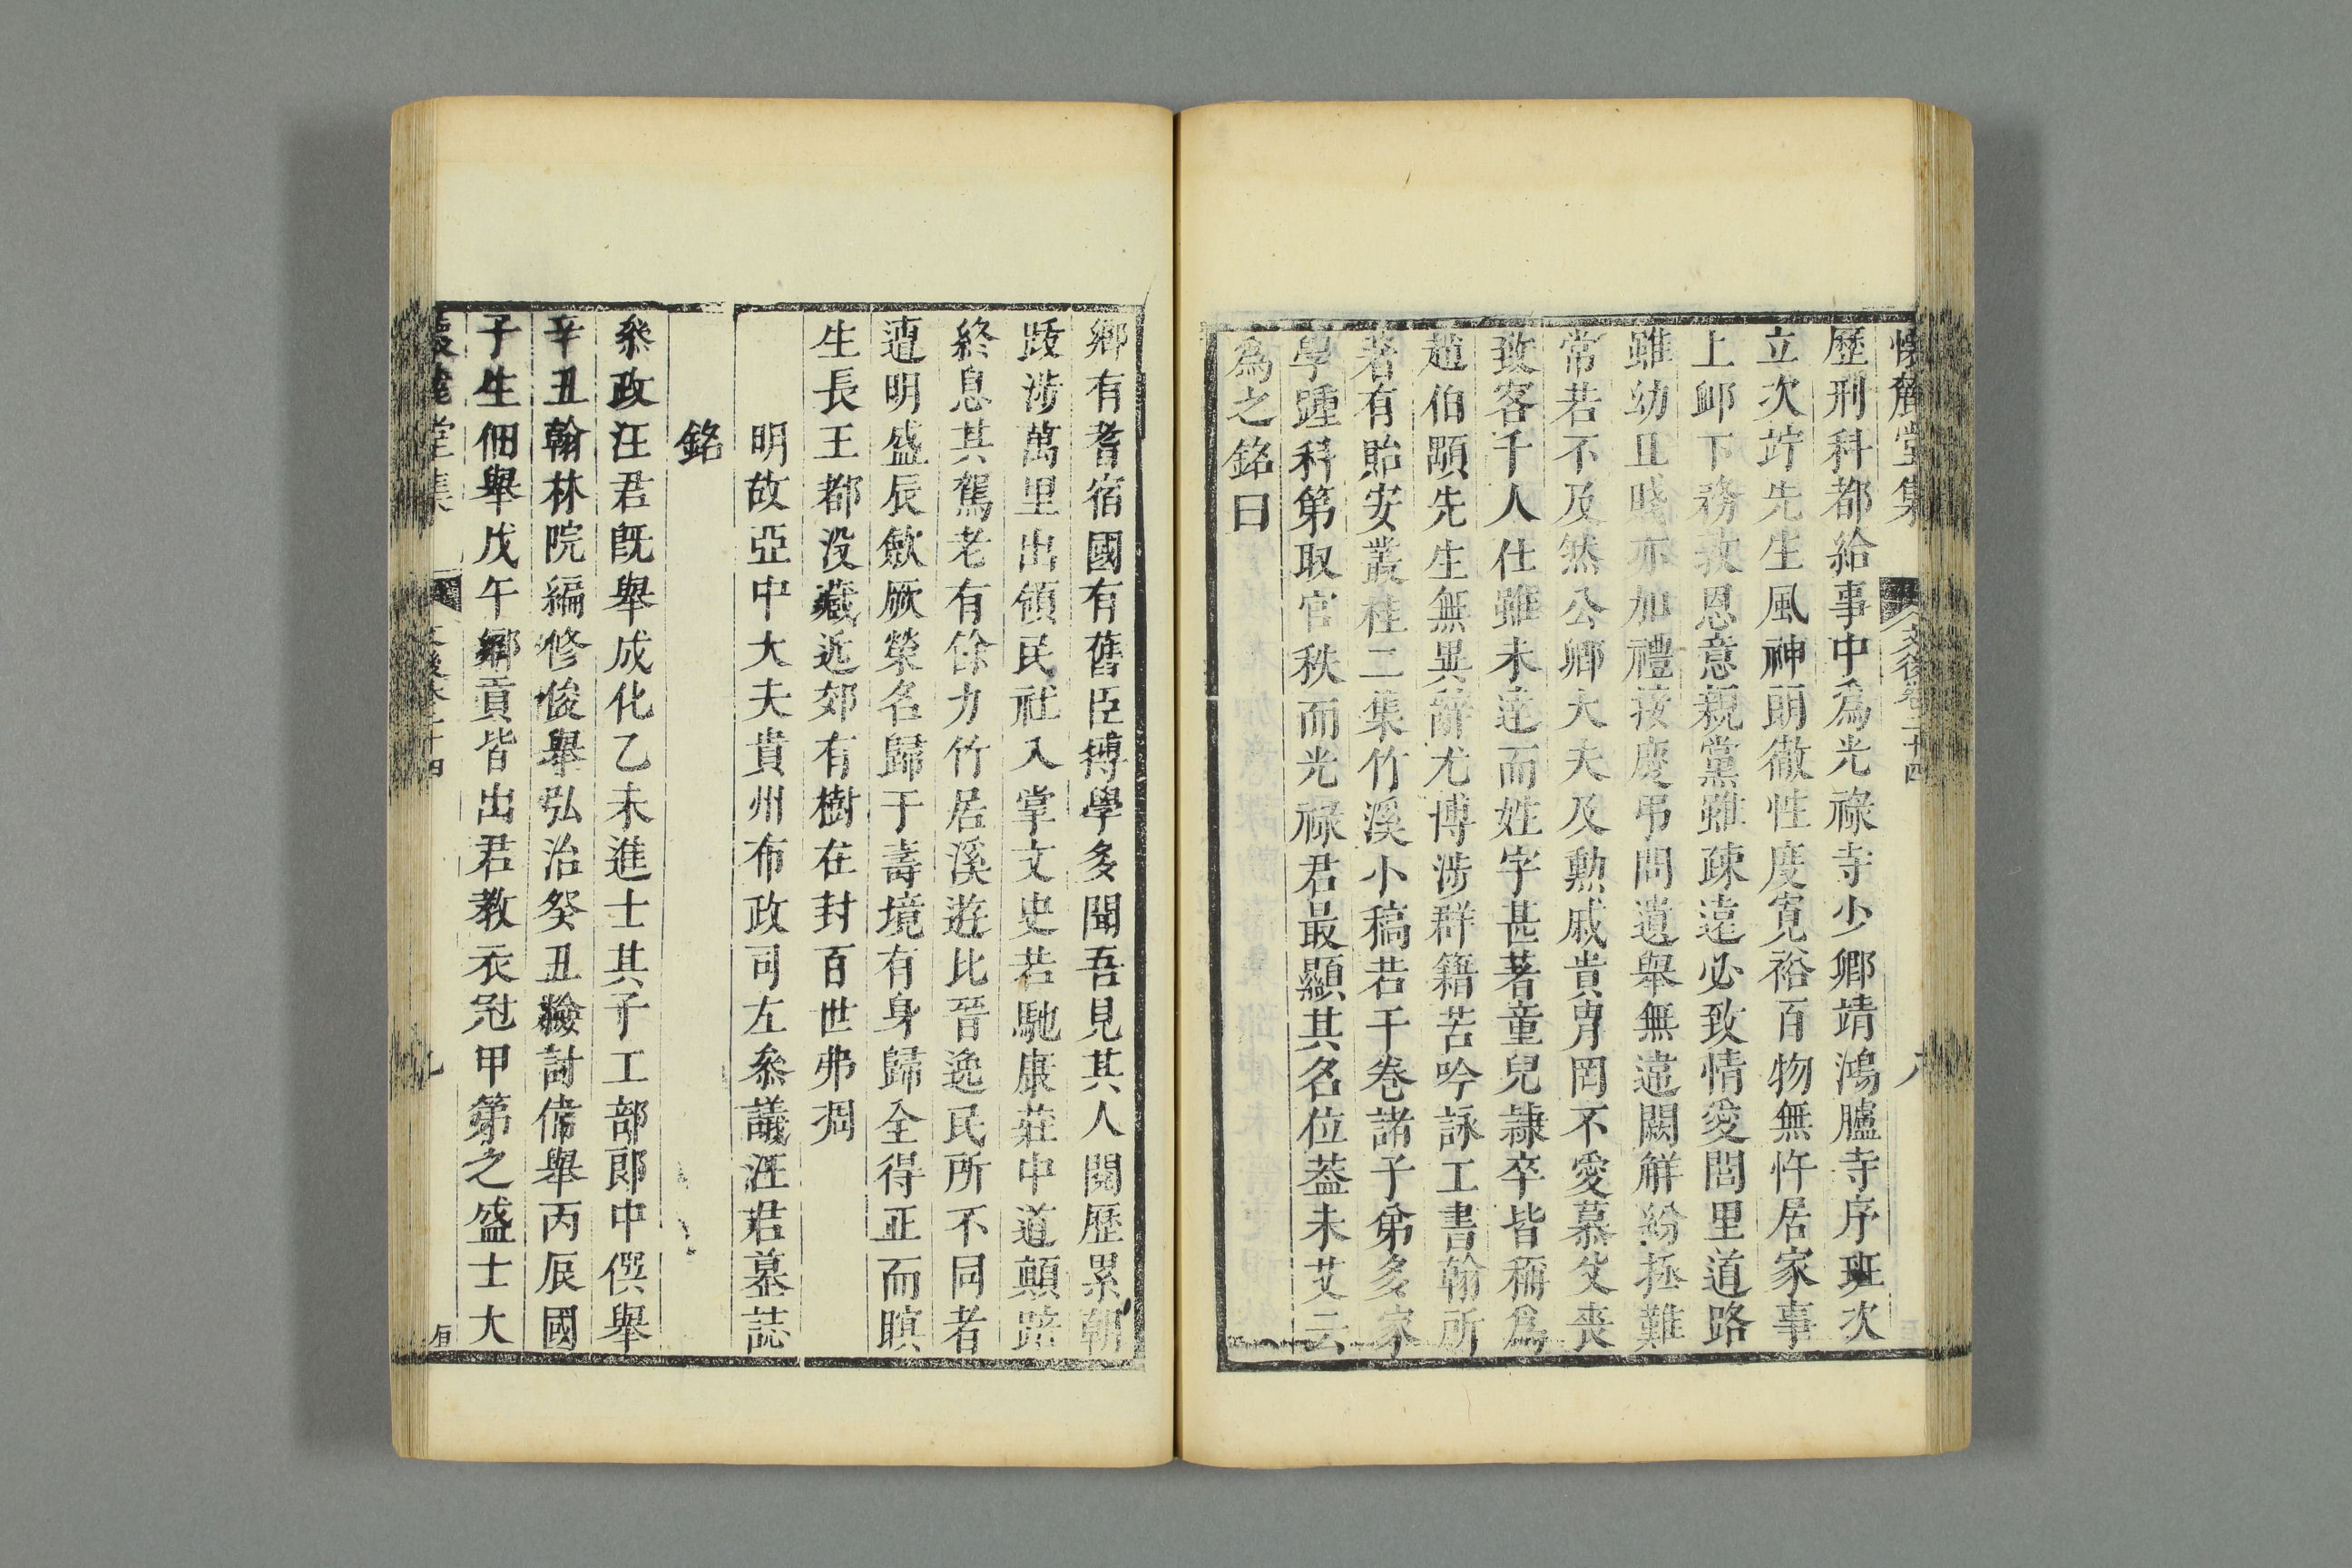 懷麓堂集 文後卷二十四 八
歷刑科都給事中爲光祿寺少卿靖鴻臚寺序班次
立次竚先生風神朗徹性度寬裕百物無忤居家事
上卹下務敦恩意親黨雖疎遠必致情愛閭里道路
雖幼且賤亦加禮接慶弔問遺舉無違闕解紛拯難
常若不及然公卿大夫及勲戚貴胄罔不愛慕父喪
致客千人仕雖未達而姓字甚著童兒隷卒皆稱爲
趙伯顒先生無異辭尤博涉群籍苦吟詠工書翰所
著有貽安叢桂二集竹溪小稿若干卷諸子弟多家
學踵科第取官秩而光祿君最顯其名位葢未艾云
爲之銘曰
鄉有耆宿國有舊臣摶學多聞吾見其人閱歷累朝
䟦涉萬里出領民社入掌文史若馳康莊中道顛踣
終息其駕老有餘力竹居溪遊比晉逸民所不同者
遭明盛辰斂厥榮名歸于壽境有身歸全得正而瞑
生長王都没藏近郊有樹在封百世弗凋
明故亞中大夫貴州布政司左叅議汪君墓誌
銘
叅政汪君旣舉成化乙未進士其子工部郎中僎舉
辛丑翰林院編修俊舉弘治癸丑檢討偉舉丙辰國
子生佃舉戊午鄉貢皆出君教衣冠甲第之盛士大
懷麓堂集 文後卷二十四 九